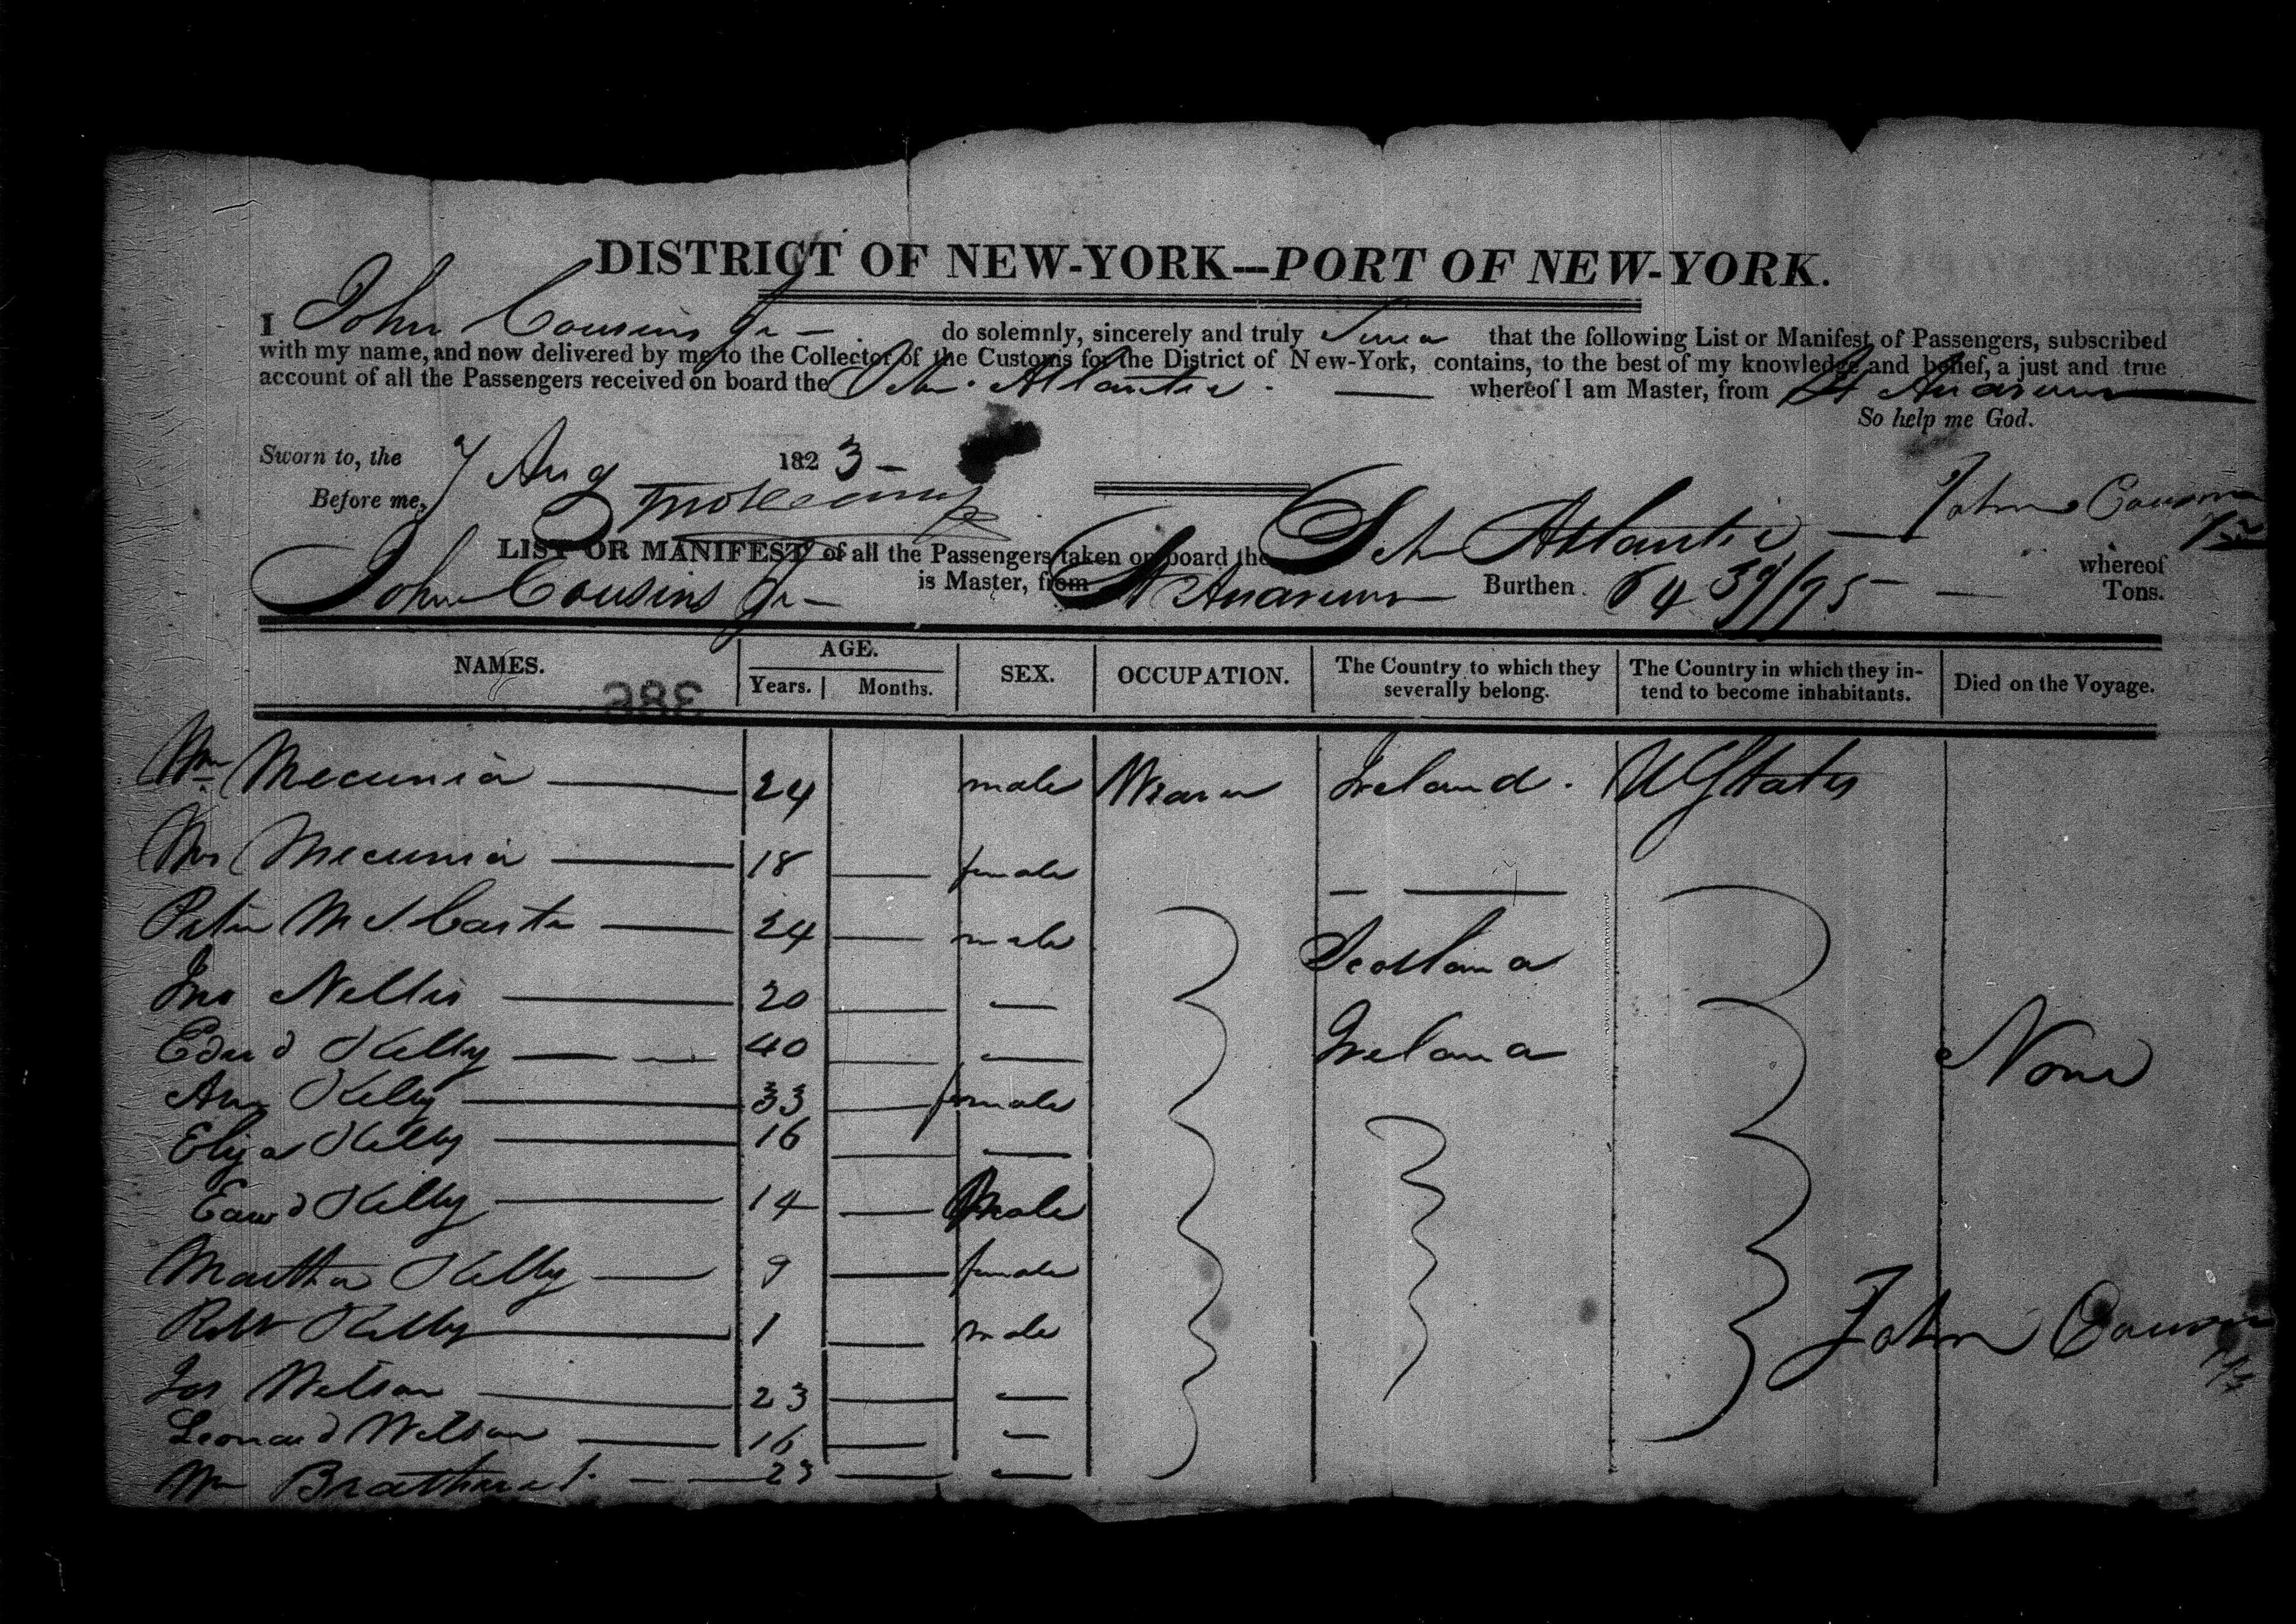 DISTRICT OF NEW-YORK—PORT OF NEW-YORK.
I John Cousins Jr — do solemnly, sincerely and truly that the following List or Manifest of Passengers, subscribed
with my name, and now delivered by me to the Collector of the Customs for the District of New-York, contains, to the best of my knowledge and belief, a just and true
account of all the Passengers received on board the Schr Atlantic — whereof I am Master, from St Andrews
So help me God.
Sworn to, the 7 Aug 1823 —
Before me,
John Cousins Jr
LIST OR MANIFEST of all the Passengers taken on board the Sch Atlantic — whereof
John Cousins Jr — is Master, from St Andrews Burthen 64 39/95 — Tons.
NAMES. AGE. Years. Months. SEX. OCCUPATION. The Country to which they severally belong. The Country in which they intend to become inhabitants. Died on the Voyage.
386
Wm — 24 male Weaver Ireland. U States
Mrs — 18 — female — —
Peter — 24 — male Scotland
Jno Nellis — 20 — — Ireland
Edwd Kelly — — 40 — — None
Ann Kelly — 33 — female
Eliza Kelly — 16 — —
Edwd Kelly — 14 — Male
Martha Kelly — 9 — female
Robt Kelly — 1 — male
Jos Wilson — 23 — —
Leonard Wilson — 16 — —
Wm — — 23 — —
John Cousins Jr